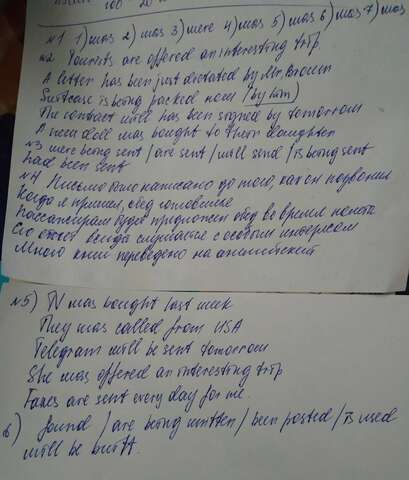 100 20
N1 1) was 2) was 3) were 4) was 5) was 6) was 7) was
N2 Tourists are offered an interesting trip
A letter has been just dictated by Mr. Brown
Suitcase is being packed now (by him)
The contract will has been signed by tomorrow
A new doll was bought to their daughter
N3 were being sent / are sent / will send / is being sent
had been sent
N4 Письмо было написано до того, как он позвонил
Когда я пришел, обед готовился
Пассажирам будет предложен обед во время полета
Его ответ всегда слушается с особым интересом
Много книг переведено на английский
N5) TV was bought last week
They was called from USA
Telegram will be sent tomorrow
She was offered an interesting trip
Faxes are sent every day for me.
6) found / are being written / been posted / is used
will be built.